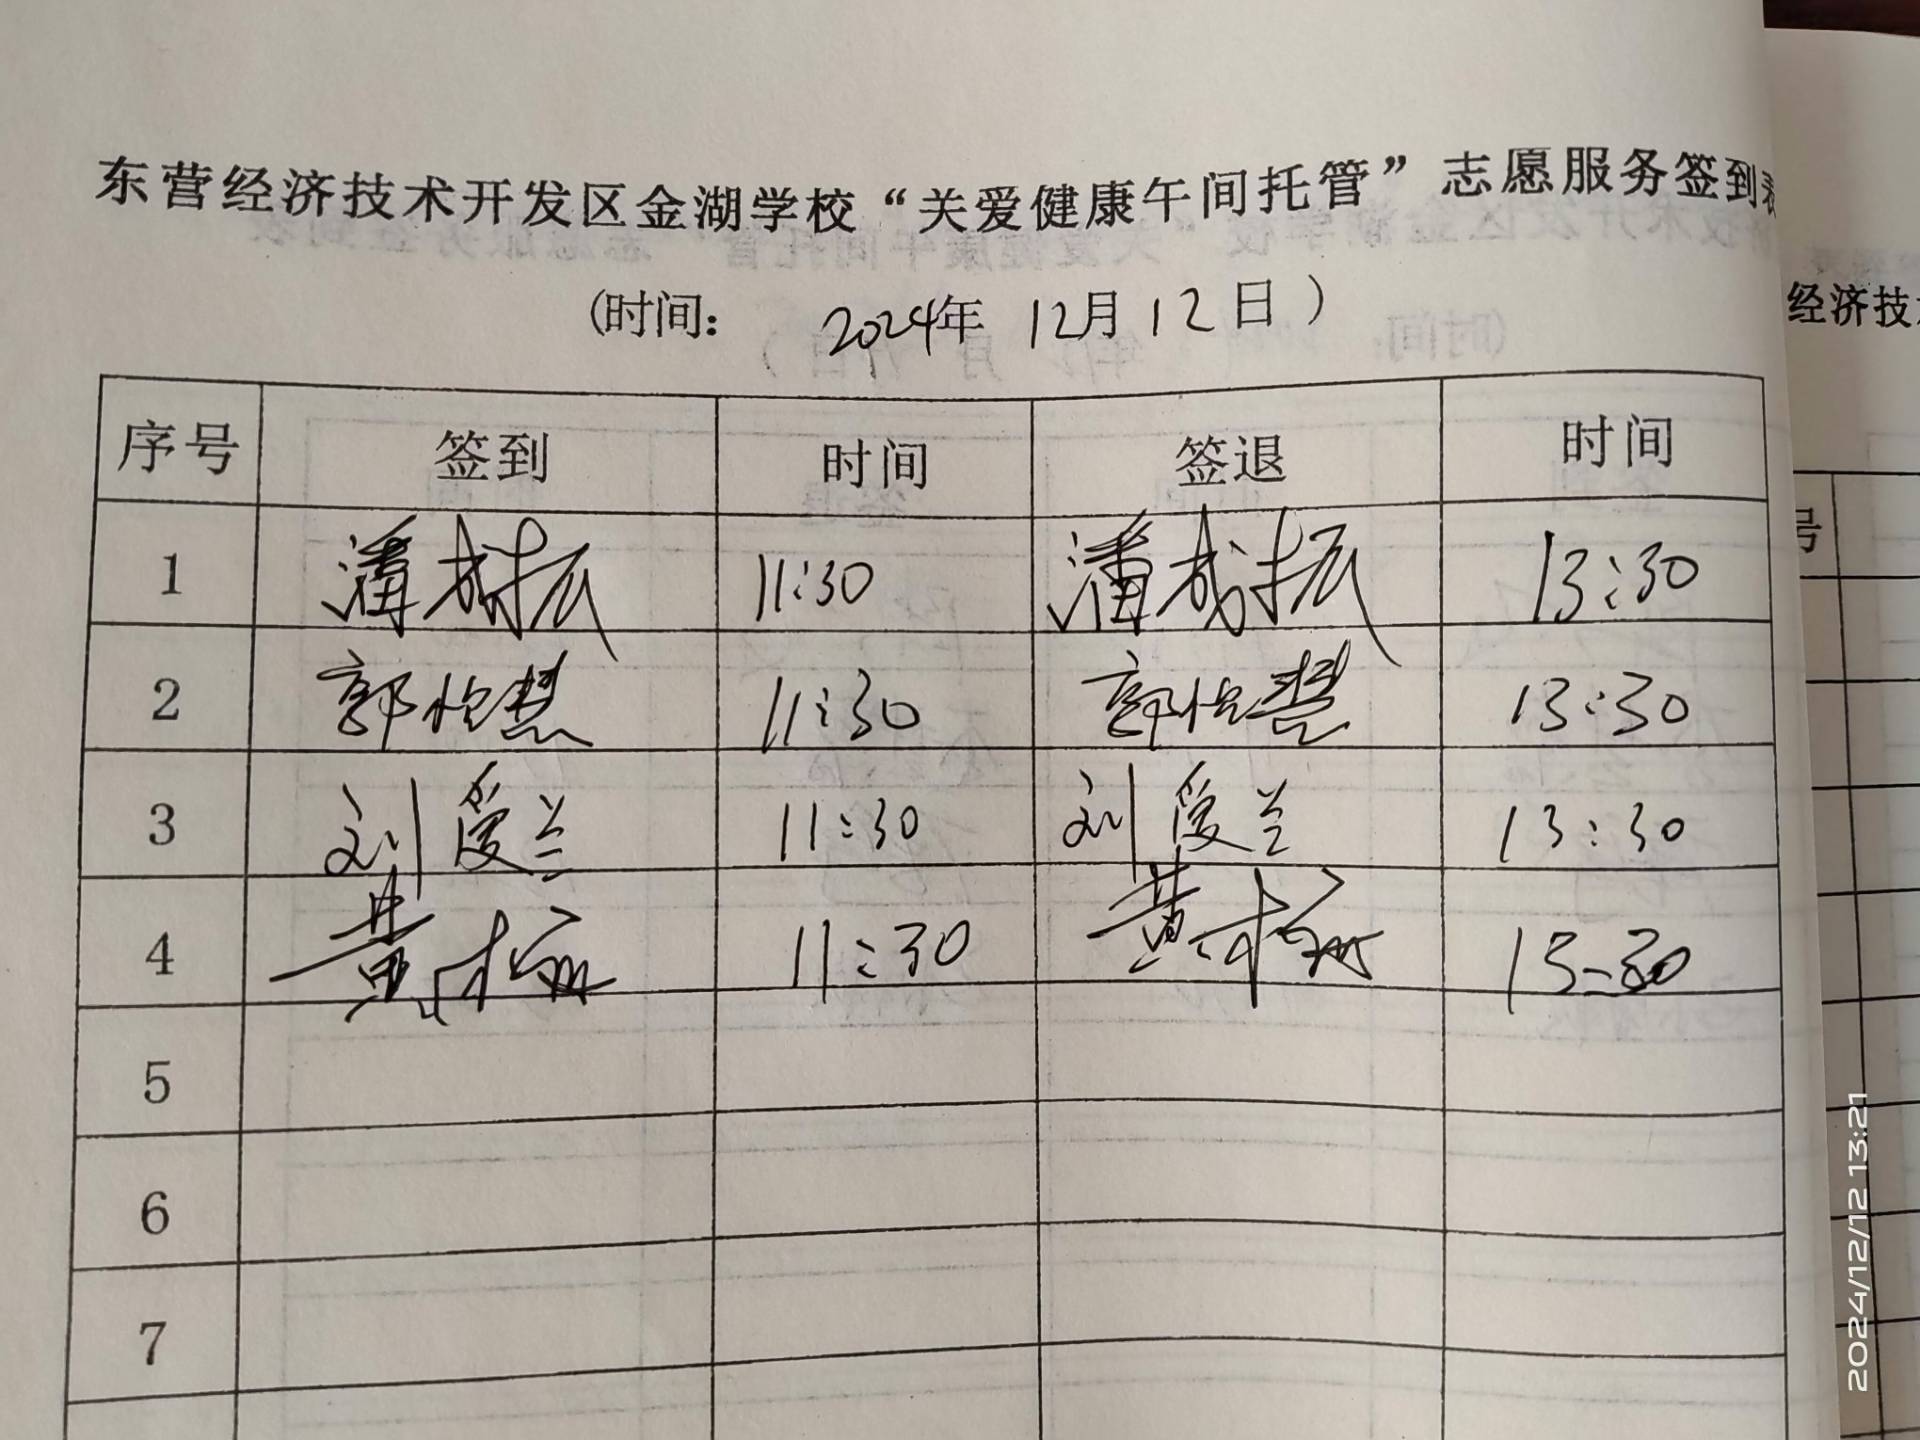 东营经济技术开发区金湖学校“关爱健康午间托管”志愿服务签到表
(时间: 2024年 12月12日)
序号 签到 时间 签退 时间
1 潘成振 11:30 潘成振 13:30
2 郭怡慧 11:30 郭怡慧 13:30
3 刘爱兰 11:30 刘爱兰 13:30
4 黄 11:30 黄 13-30
5
6
7
经济技术
号
2024/12/12 13:21